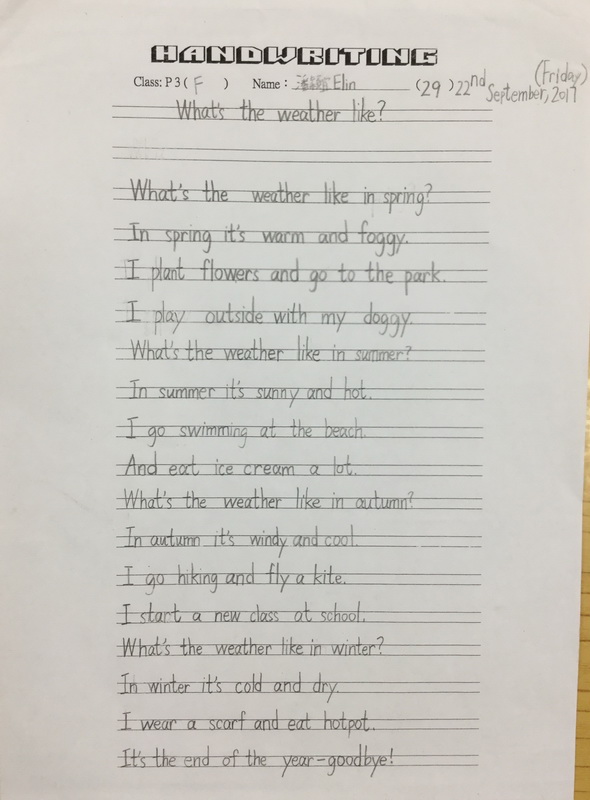 HANDWRITING
Class: P 3 ( F ) Name : Elin (29) 22nd September, 2017 (Friday)
What's the weather like?
What's the weather like in spring?
In spring it's warm and foggy.
I plant flowers and go to the park.
I play outside with my doggy.
What's the weather like in summer?
In summer it's sunny and hot.
I go swimming at the beach.
And eat ice cream a lot.
What's the weather like in autumn?
In autumn it's windy and cool.
I go hiking and fly a kite.
I start a new class at school.
What's the weather like in winter?
In winter it's cold and dry.
I wear a scarf and eat hotpot.
It's the end of the year-goodbye!